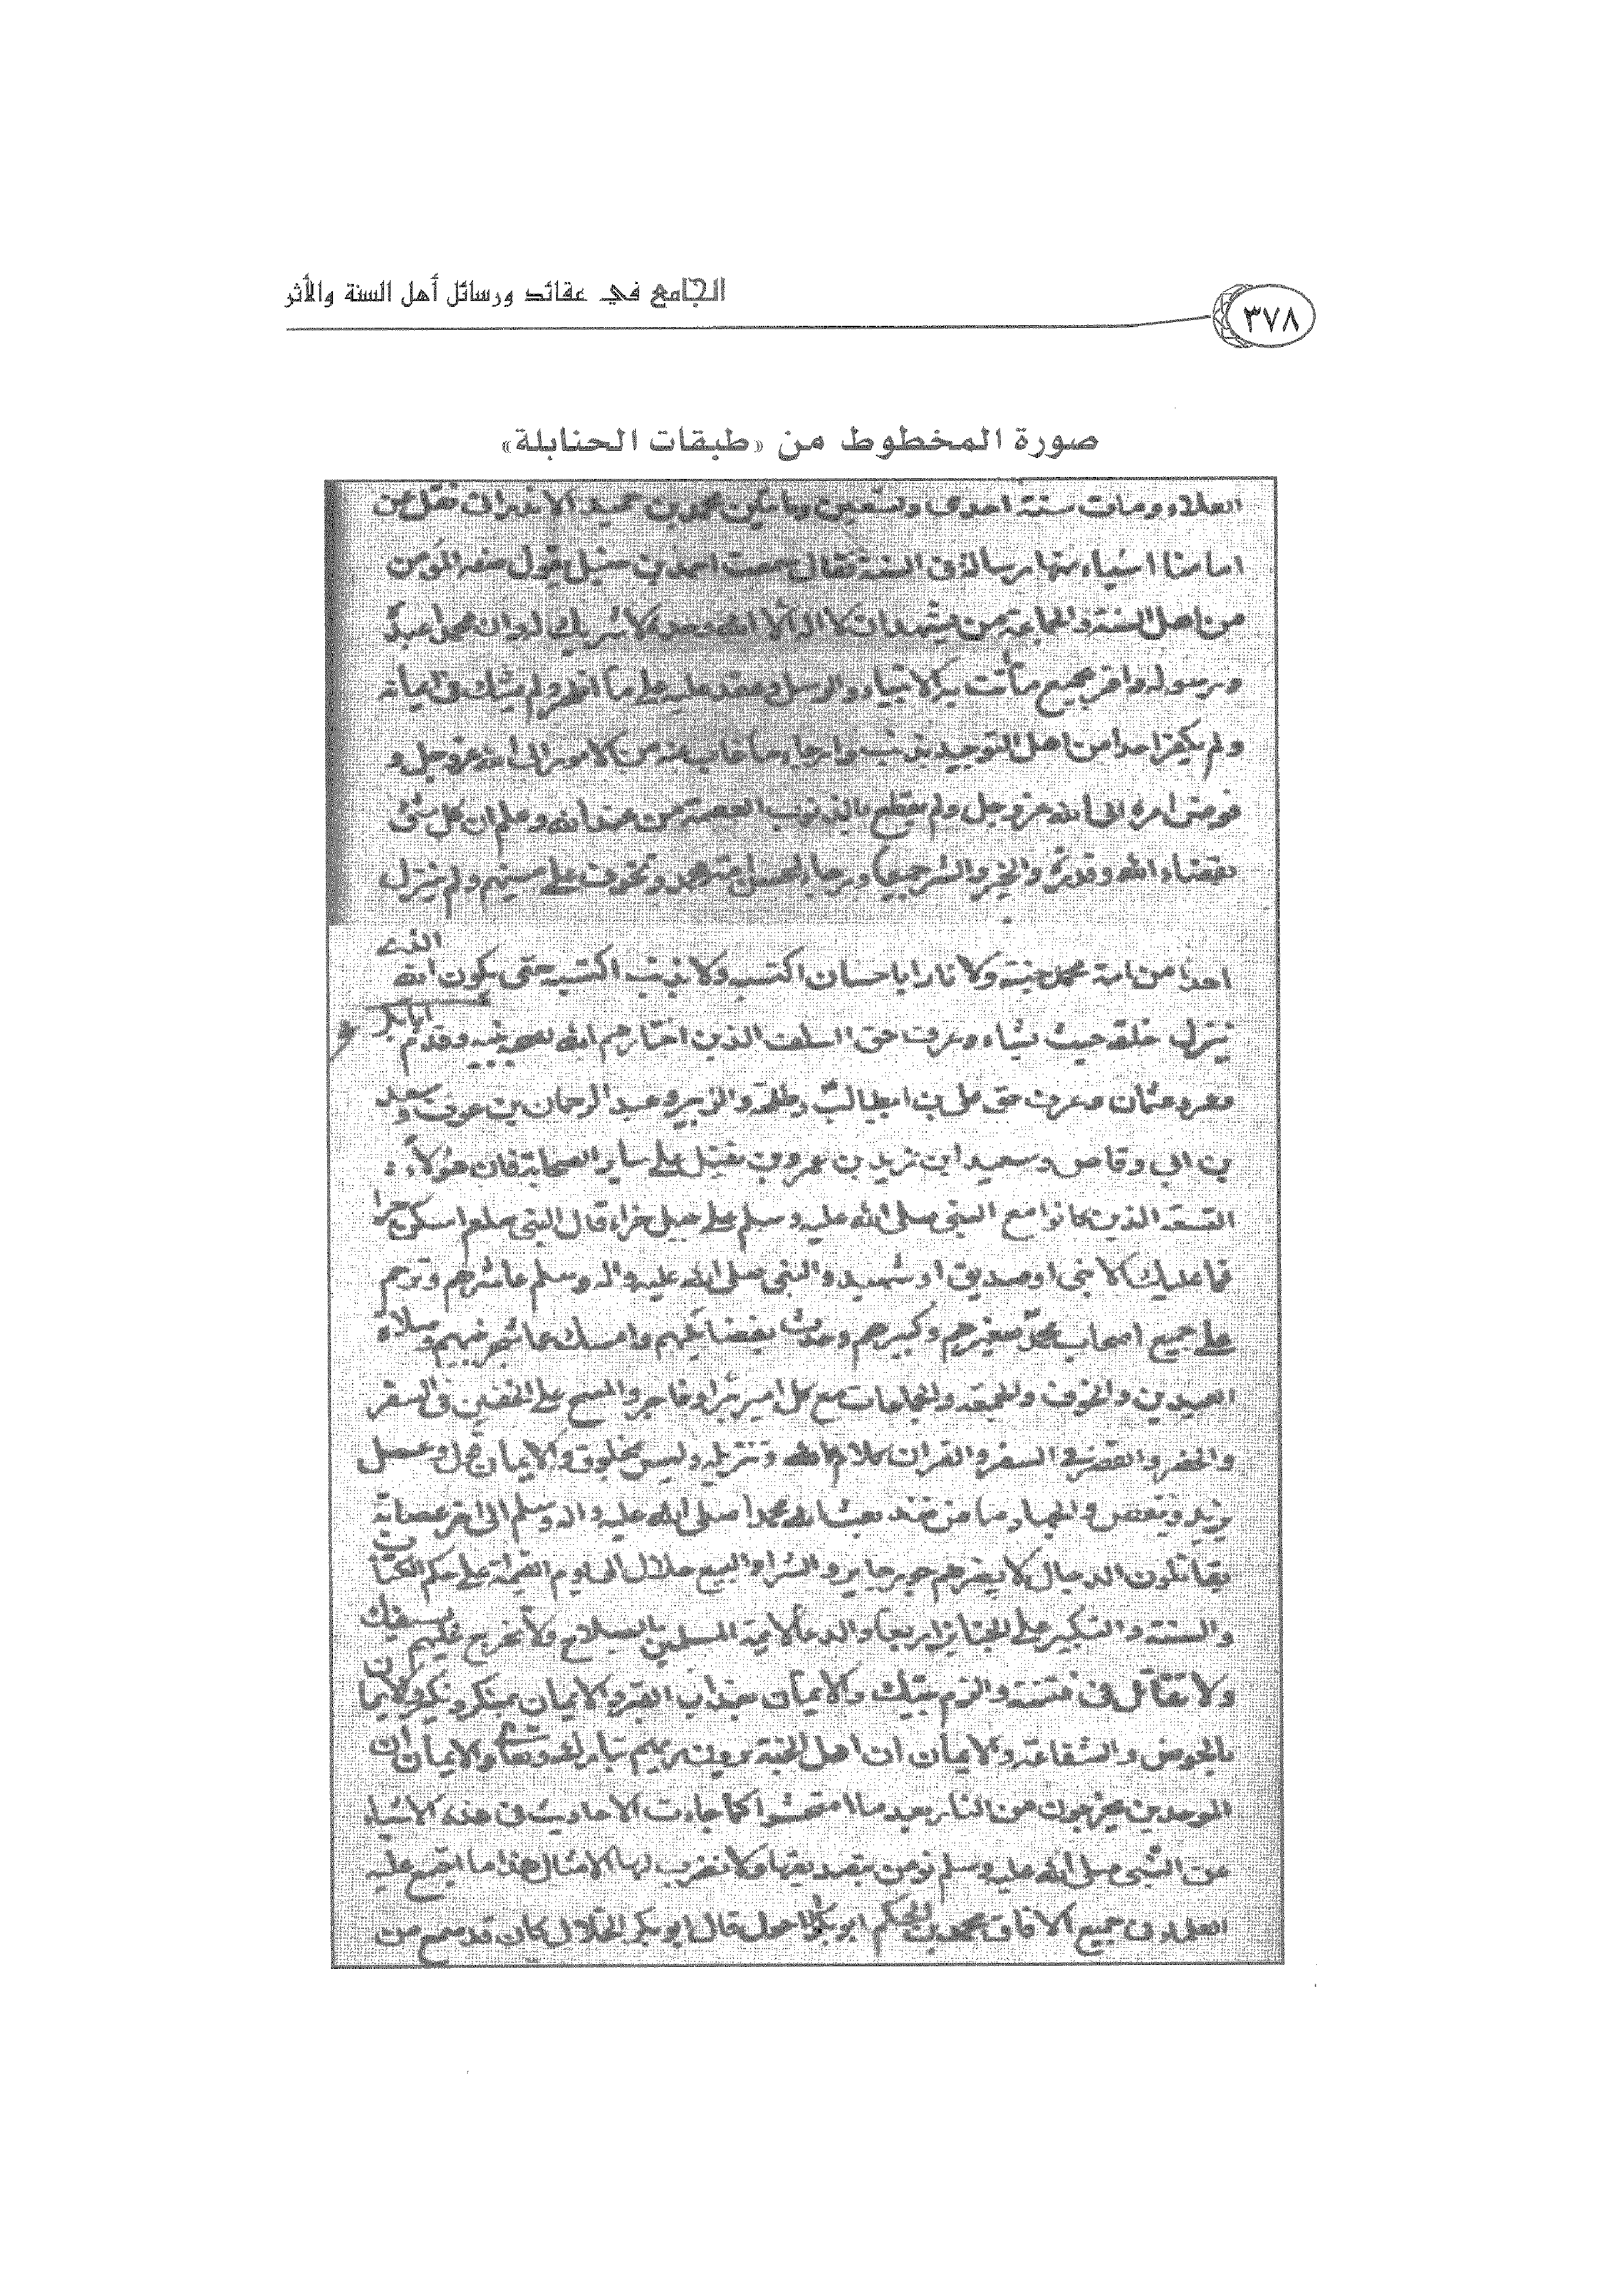 الجامع في عقائد ورسائل أهل السنة والأثر
٣٧٨
صورة المخطوط من «طبقات الحنابلة»
العلاء ومات سنة احدى وتسعين ومائتين محمد بن حميد الاندرانى نقل عن
امامنا اشياء منها رسالة فى السنة فقال سمعت احمد بن حنبل يقول صفة المؤمن
من اهل السنة والجماعة من يشهد ان لا اله الا الله وحده لا شريك له وان محمدا عبده
ورسوله واقر بجميع ما أتت به الانبياء والرسل وعقد عليه على ما اظهر ولم يشك فى ايمانه
ولم يكفر احدا من اهل التوحيد بذنب وارجاء ما غاب عنه من الامور الى الله عز وجل و
فوض امره الى الله عز وجل ولم يقطع بالذنوب العصمة من عند الله وعلم ان كل شئ
بقضاء الله وقدره والخير والشر جميعا ورجا لمحسن امة محمد وتخوف على مسيئهم ولم ينزل
احدا من امة محمد جنة ولا نارا باحسان اكتسب ولا ذنب اكتسبه حتى يكون الله الذى
ينزل خلقه حيث شاء وعرف حق السلف الذين اختارهم الله لصحبة نبيه وقدم ابا بكر
وعمر وعثمان وعرف حق على بن ابى طالب وطلحة والزبير وعبد الرحمان بن عوف وسعد
بن ابى وقاص وسعيد ابن زيد بن عمرو بن نفيل على سائر الصحابة فان هؤلاء
التسعة الذين كانوا مع النبى صلى الله عليه وسلم على جبل حراء قال النبى صلعم اسكن حرا
فما عليك الا نبى او صديق او شهيد والنبى صلى الله عليه واله وسلم عاشرهم وترحم
على جميع اصحاب محمد صغيرهم وكبيرهم وحدث بفضائلهم وامسك عما شجر بينهم وصلاة
العيدين والخوف والجمعة والجماعات مع كل امير بر او فاجر والمسح على الخفين فى السفر
والحضر والقصر فى السفر والقران كلام الله وتنزيله وليس بمخلوق والايمان قول وعمل
يزيد وينقص والجهاد ماض منذ بعث الله محمدا صلى الله عليه واله وسلم الى اخر عصابة
يقاتلون الدجال لا يضرهم جور جاير والشراء والبيع حلال الى يوم القيمة على حكم الكتاب
والسنة والتكبير على الجنائز اربعا والدعا لائمة المسلمين بالصلاح ولا تخرج عليهم بسيفك
ولا تقاتل فى فتنة والزم بيتك والايمان بعذاب القبر والايمان بمنكر ونكير والايمان
بالحوض والشفاعة والايمان ان اهل الجنة يرون ربهم تبارك وتعالى والايمان ان
الموحدين يخرجون من النار بعد ما امتحشوا كما جاءت الاحاديث فى هذه الاشياء
عن النبى صلى الله عليه وسلم نؤمن بتصديقها ولا نضرب لها الامثال هذا ما اجتمع عليه
العلماء فى جميع الافاق محمد بن الحكم ابو بكر الاحول قال ابو بكر الخلال كان قد سمع من